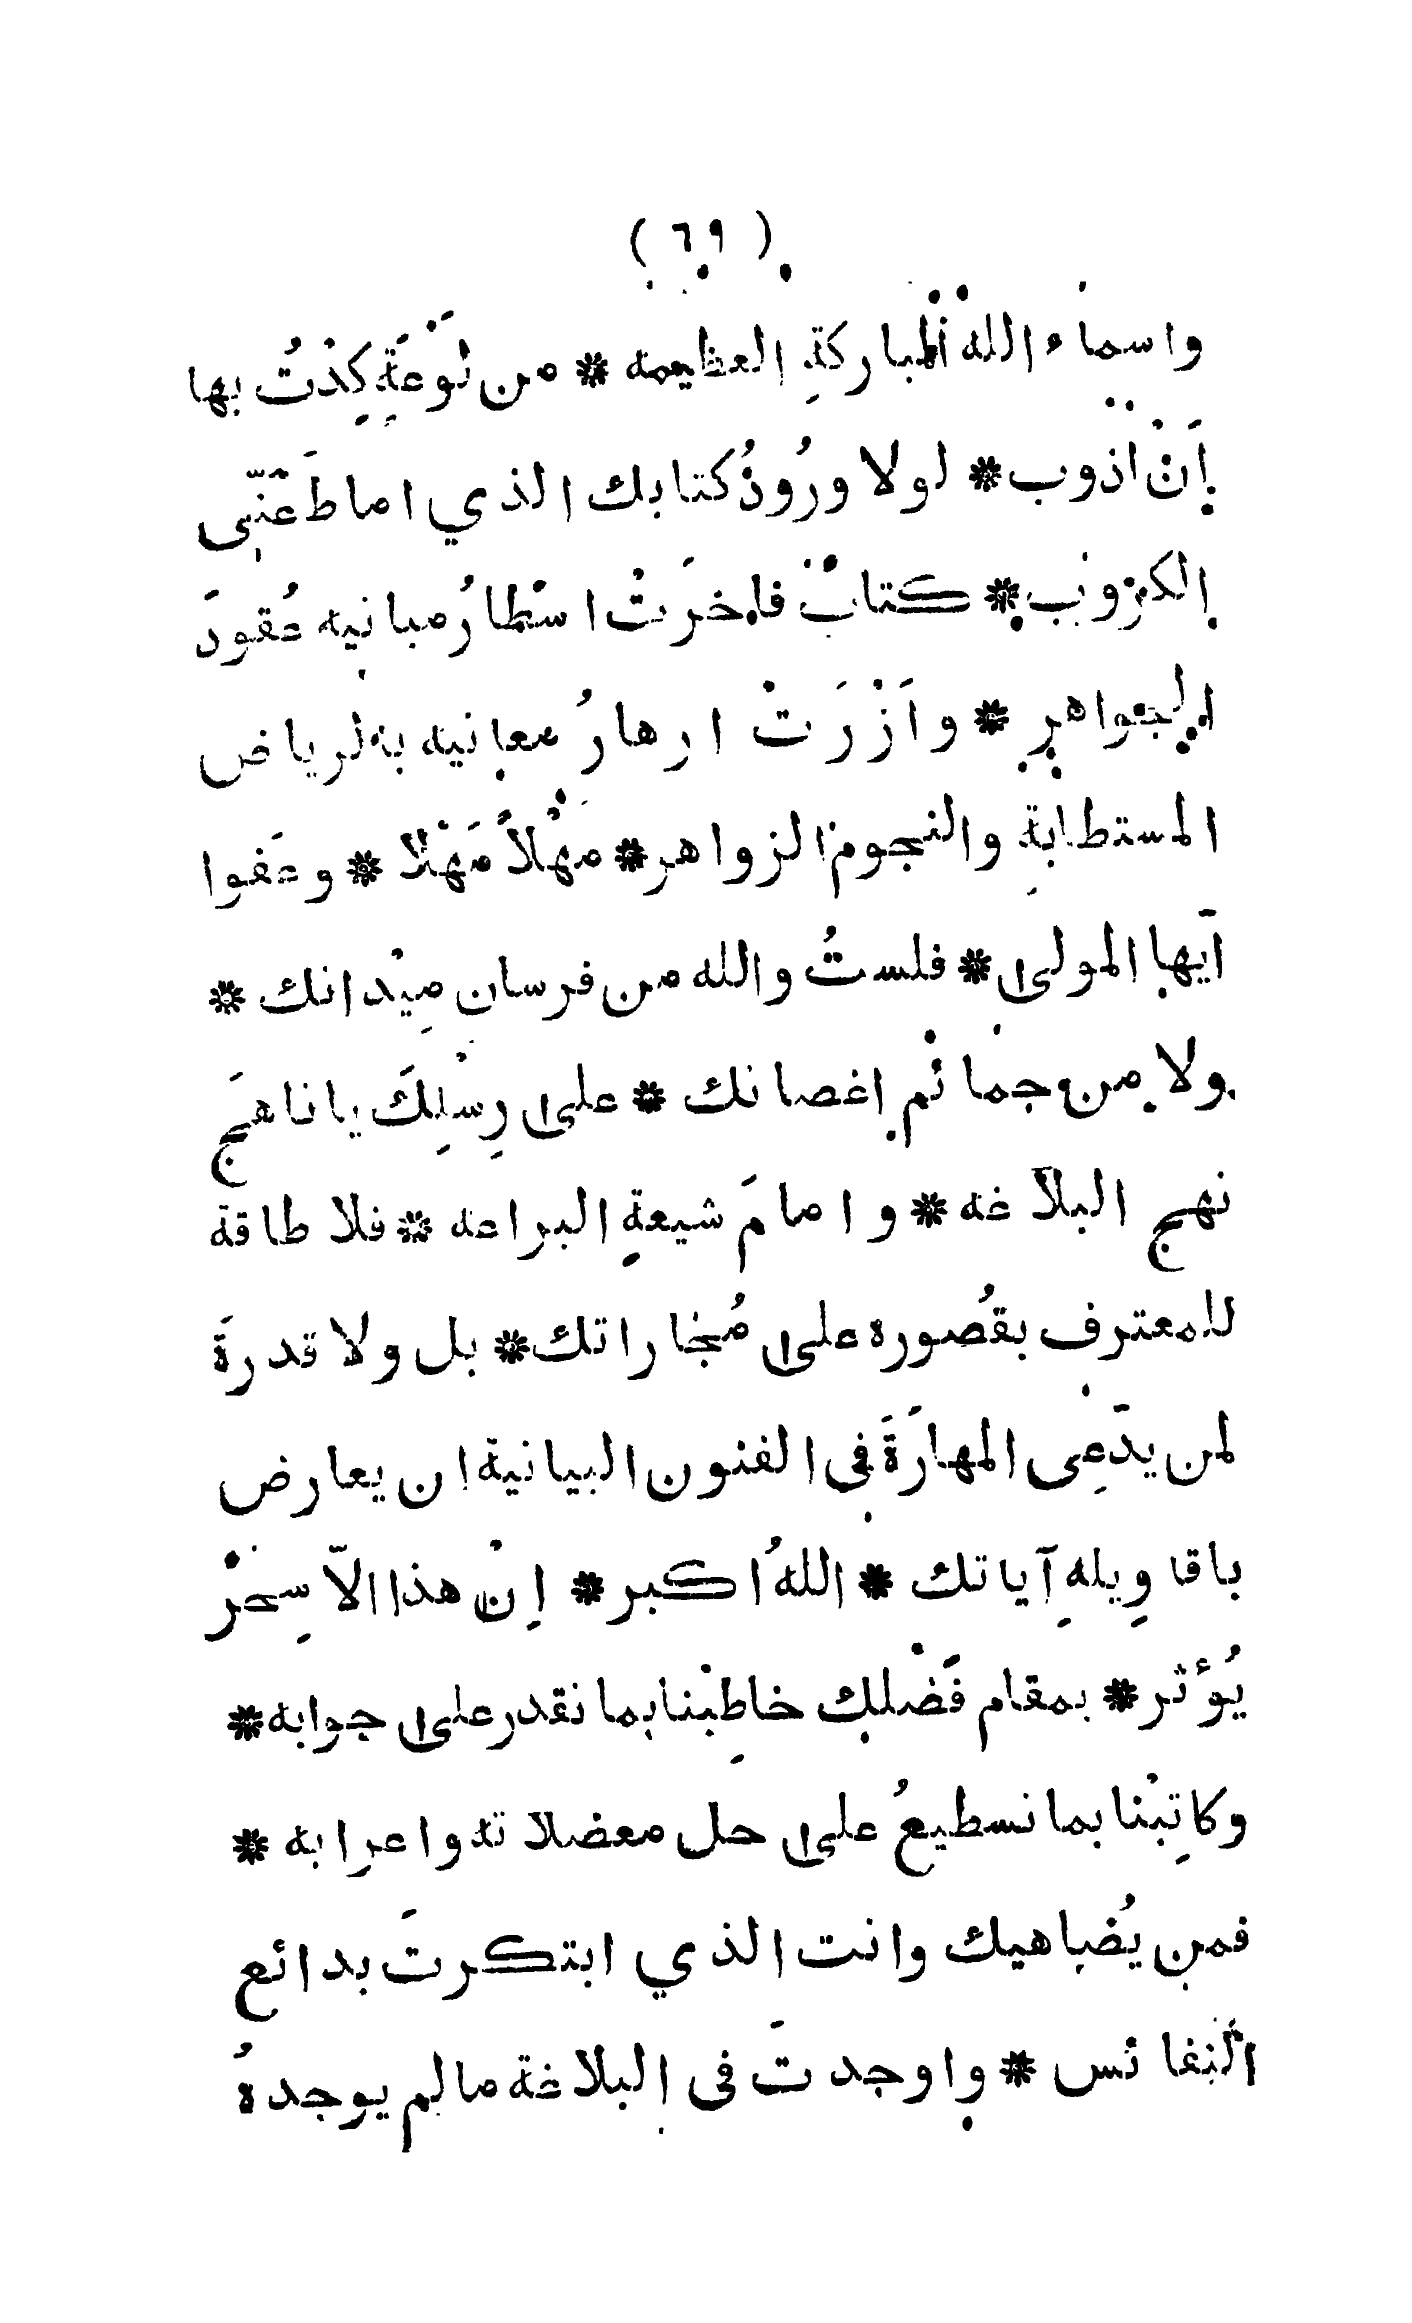 ( ٦٩ )
واسماء الله المباركةِ العظيمه * من لَوْعَةٍ كِدْتُ بها
اَنْ اذوب * لولا ورُودُ كتابك الذي اماطَ عَنّى
الكروب * كتابٌ فاخرَتْ اسْطارُ مبانيه عُقودَ
الجواهر * واَزْرَتْ ازهارُ معانيه بالرياض
المستطابةِ والنجوم الزواهر * مَهْلاً مَهْلا * وعَفوا
اَيها المولى * فلستُ والله من فرسان مِيْدانك *
ولا من حمائم اغصانك * على رِسْلِكَ يا ناهجَ
نهج البلاغه * وامامَ شيعةِ البراعه * فلا طاقة
للمعترف بقُصوره على مُجاراتك * بل ولا قدرةَ
لمن يدّعِى المهارَةَ فى الفنون البيانية ان يعارض
باقاوِيلهِ آياتك * اللهُ اكبر * اِنْ هذا الاّ سِحْرٌ
يُؤثر * بمقام فَضْلك خاطِبْنا بما نقدر على جوابه *
وكاتِبْنا بما نسطيعُ على حل معضلاته واعرابه *
فمن يُضاهيك وانت الذي ابتكرتَ بدائع
النفائس * واوجدتَ فى البلاغة ما لم يوجدهُ